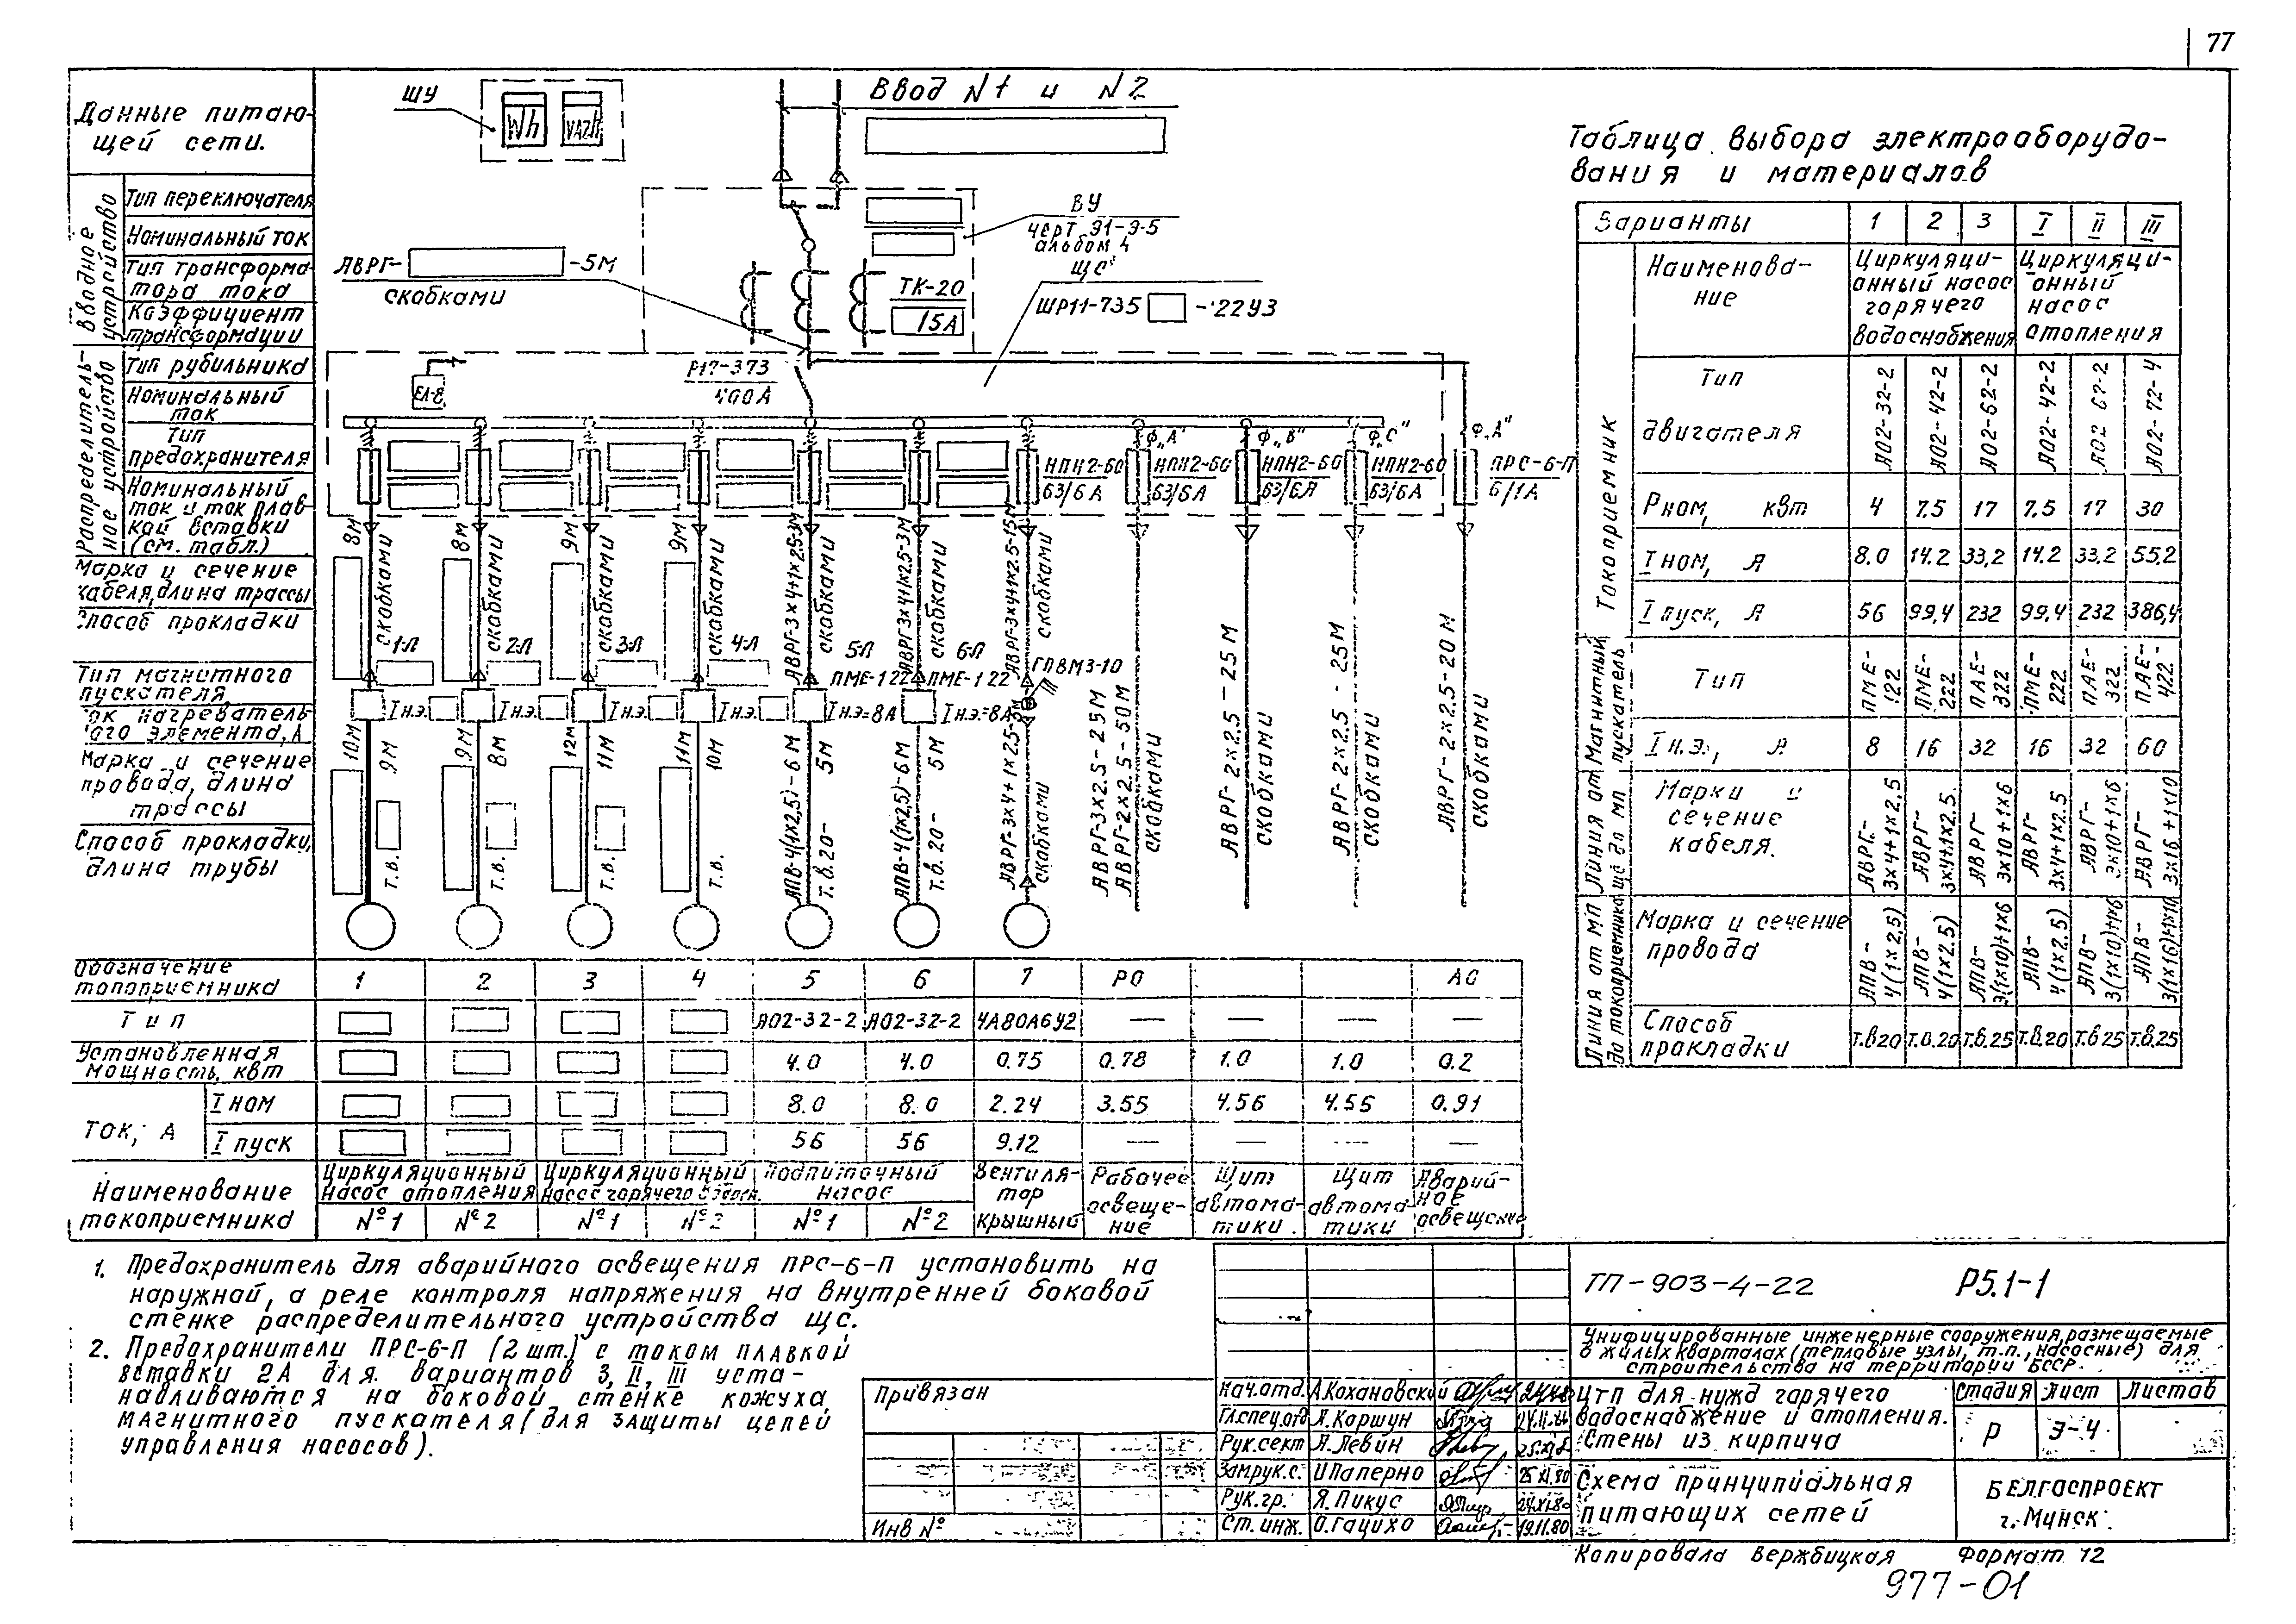 77
Данные питаю-
щей сети.
Вводное устройство
Тип переключателя
Номинальный ток
Тип трансформа-
тора тока
Коэффициент
трансформации
Распределитель-
ное устройство
Тип рубильника
Номинальный
ток
Тип
предохранителя
Номинальный
ток и ток плав-
кой вставки
(см. табл.)
Марка и сечение
кабеля, длина трассы
Способ прокладки
Тип магнитного
пускателя
Ток нагреватель-
ного элемента, А
Марка и сечение
провода, длина
трассы
Способ прокладки,
длина трубы
ШУ
Wh
Ввод N1 и N2
ВУ
черт. Э1-Э-5
альбом 4
ЩС
ШР11-735 -22У3
АВРГ- -5м
скобками
ТК-20
15А
Р17-373
400А
ЕЛ-8
ф„А" ф„В" ф„С" ф„А"
НПН2-60 НПН2-60 НПН2-60 НПН2-60 ПРС-6-П
63/6А 63/6А 63/6А 63/6А 6/1А
8м 8м 9м 9м
скобками скобками скобками скобками
АВРГ-3х4+1х2.5-3м скобками
АВРГ-3х4+1х2.5-3м скобками
АВРГ-3х4+1х2.5-15м скобками
1-Л 2-Л 3-Л 4-Л 5-Л 6-Л
ПМЕ-122 ПМЕ-122 ГПВМ3-10
Iн.э. Iн.э. Iн.э. Iн.э. Iн.э=8А Iн.э=8А
10м 9м 9м 8м 12м 11м 11м 10м
т.в. т.в. т.в. т.в.
АПВ-4(1х2,5)-6м т.в.20- 5м
АПВ-4(1х2,5)-6м т.в.20- 5м
АВРГ-3х4+1х2.5-5м скобками
АВРГ-3х2.5-25м
АВРГ-2х2.5-50м
скобками
АВРГ-2х2.5-25м
скобками
АВРГ-2х2.5-25м
скобками
АВРГ-2х2.5-20м
скобками
Обозначение
токоприемника 1 2 3 4 5 6 7 РО АО
Тип А02-32-2 А02-32-2 4А80А6У2 — — — —
Установленная
мощность, квт 4.0 4.0 0.75 0.78 1.0 1.0 0.2
Ток, А
I ном 8.0 8.0 2.24 3.55 4.56 4.56 0.91
I пуск 56 56 9.12 — — — —
Наименование
токоприемника
Циркуляционный
насос отопления
№1 №2
Циркуляционный
насос горячего водосн.
№1 №2
Подпиточный
насос
№1 №2
Вентиля-
тор
крышный
Рабочее
освеще-
ние
Щит
автома-
тики
Щит
автома-
тики
Аварий-
ное
освещение
Таблица выбора электрооборудо-
вания и материалов
Варианты 1 2 3 I II III
Токоприемник
Наименова-
ние
Циркуляци-
онный насос
горячего
водоснабжения
Циркуляци-
онный
насос
отопления
Тип
двигателя
А02-32-2 А02-42-2 А02-62-2 А02-42-2 А02-62-2 А02-72-4
Рном, квт 4 7.5 17 7.5 17 30
Iном, А 8.0 14.2 33,2 14.2 33,2 55,2
Iпуск, А 56 99,4 232 99,4 232 386,4
Магнитный пускатель
Тип ПМЕ-122 ПМЕ-222 ПАЕ-322 ПМЕ-222 ПАЕ-322 ПАЕ-422
Iн.э., А 8 16 32 16 32 60
Линия от
до мп
Марки и
сечение
кабеля.
АВРГ-3х4+1х2,5 АВРГ-3х4+1х2.5 АВРГ-3х10+1х6 АВРГ-3х4+1х2.5 АВРГ-3х10+1х6 АВРГ-3х16+1х10
Линия от МП
до токоприемника
Марка и сечение
провода
АПВ-4(1х2,5) АПВ-4(1х2.5) АПВ-3(1х10)+1х6 АПВ-4(1х2.5) АПВ-3(1х10)+1х6 АПВ-3(1х16)+1х10
Способ
прокладки
т.в20 т.в.20 т.в.25 т.в.20 т.в25 т.в.25
1. Предохранитель для аварийного освещения ПРС-6-П установить на
наружной, а реле контроля напряжения на внутренней боковой
стенке распределительного устройства щс.
2. Предохранители ПРС-6-П (2 шт.) с током плавкой
вставки 2А для вариантов 3, II, III уста-
навливаются на боковой стенке кожуха
магнитного пускателя (для защиты цепей
управления насосов).
Привязан
Инв №
Нач.отд. А.Кохановский
Гл.спец.отд Л.Коршун
Рук.сект Л.Левин
Зам.рук.с. И.Паперно
Рук.гр. Я.Пикус
Ст.инж. О.Гацихо 19.11.80
ТП-903-4-22 Р5.1-1
Унифицированные инженерные сооружения, размещаемые
в жилых кварталах (тепловые узлы, т.п., насосные) для
строительства на территории БССР.
ЦТП для нужд горячего
водоснабжение и отопления.
Стены из кирпича
Стадия Лист Листов
Р Э-4
Схема принципиальная
питающих сетей
БЕЛГОСПРОЕКТ
г. Минск.
Копировала Вержбицкая Формат 12
977-01